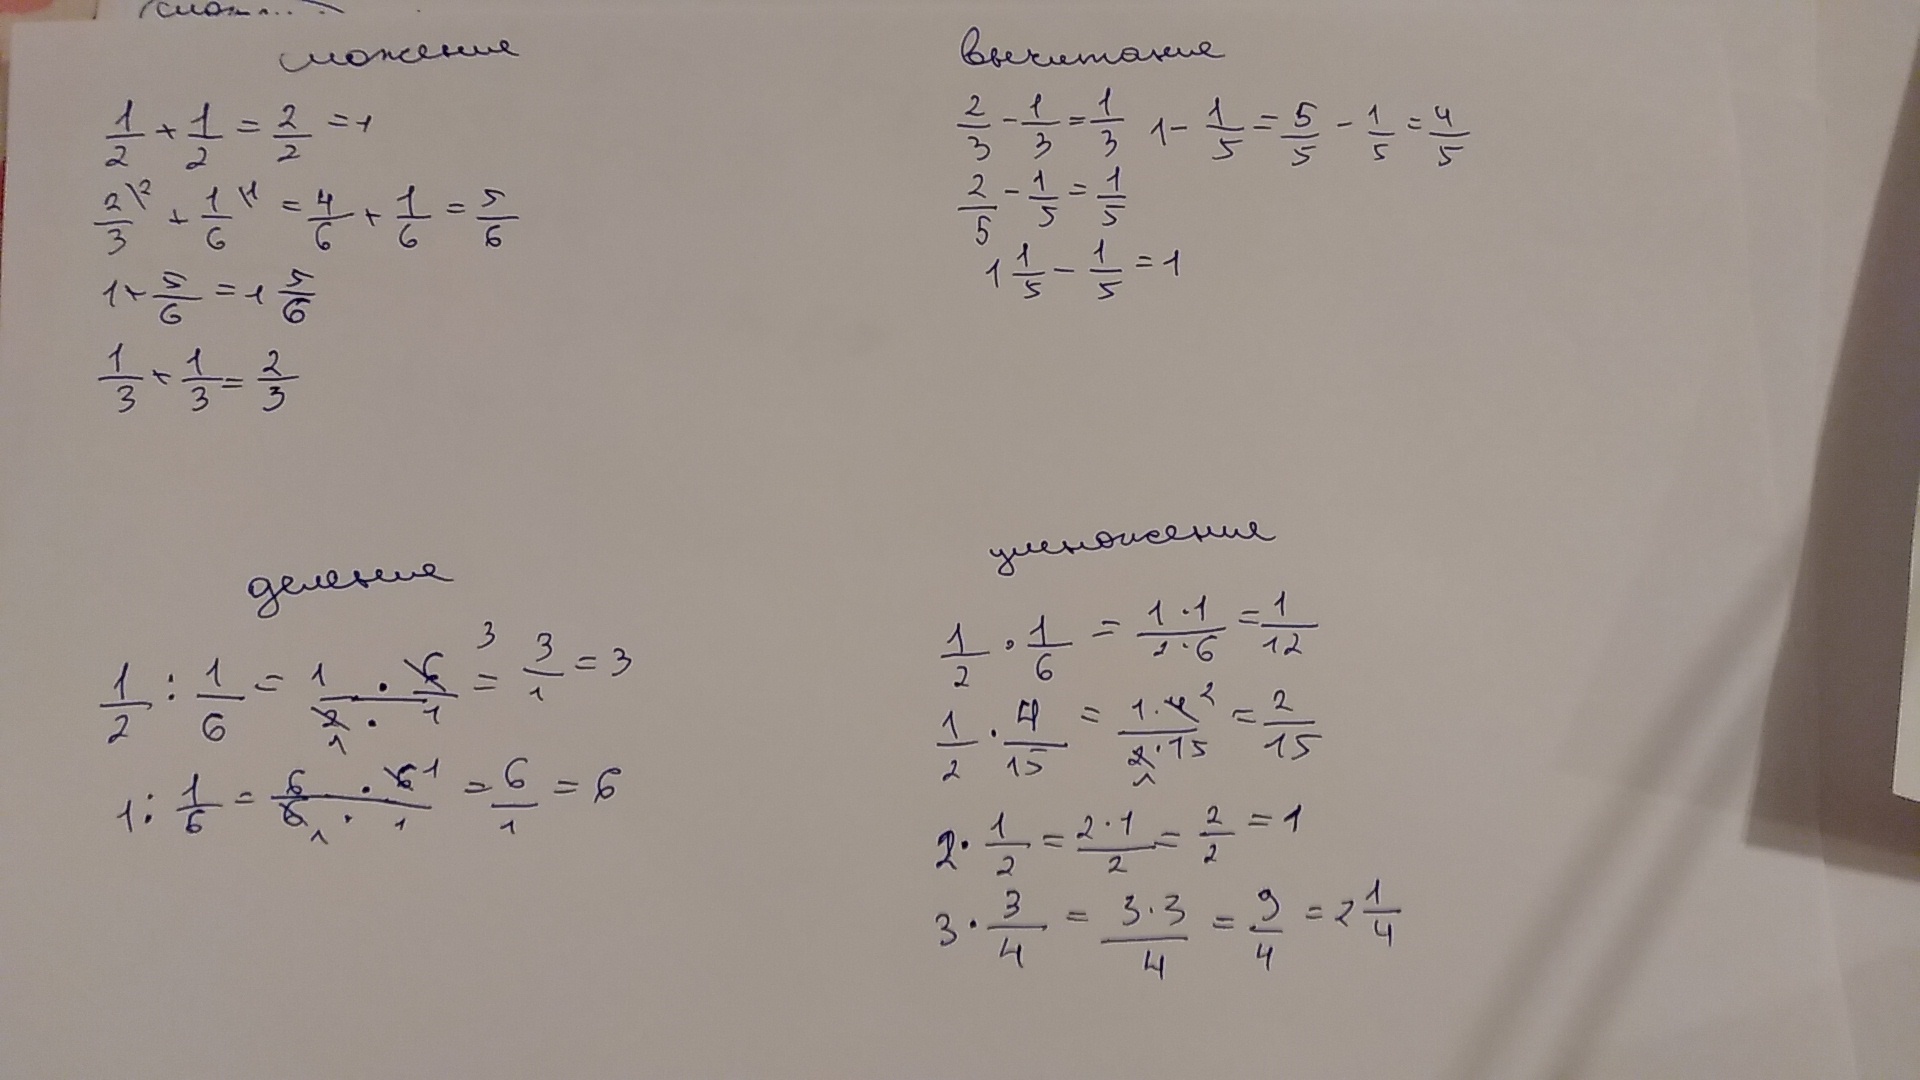 сложение
1/2 + 1/2 = 2/2 = 1
2/3\2 + 1/6\1 = 4/6 + 1/6 = 5/6
1 + 5/6 = 1 5/6
1/3 + 1/3 = 2/3
вычитание
2/3 - 1/3 = 1/3 1 - 1/5 = 5/5 - 1/5 = 4/5
2/5 - 1/5 = 1/5
1 1/5 - 1/5 = 1
деление
1/2 : 1/6 = 1 · 6 3 / 2 1 · 1 = 3/1 = 3
1 : 1/6 = 6 · 6 1 / 6 1 · 1 = 6/1 = 6
умножение
1/2 · 1/6 = 1·1/2·6 = 1/12
1/2 · 4/15 = 1·4 2 / 2 1 ·15 = 2/15
2 · 1/2 = 2·1/2 = 2/2 = 1
3 · 3/4 = 3·3/4 = 9/4 = 2 1/4